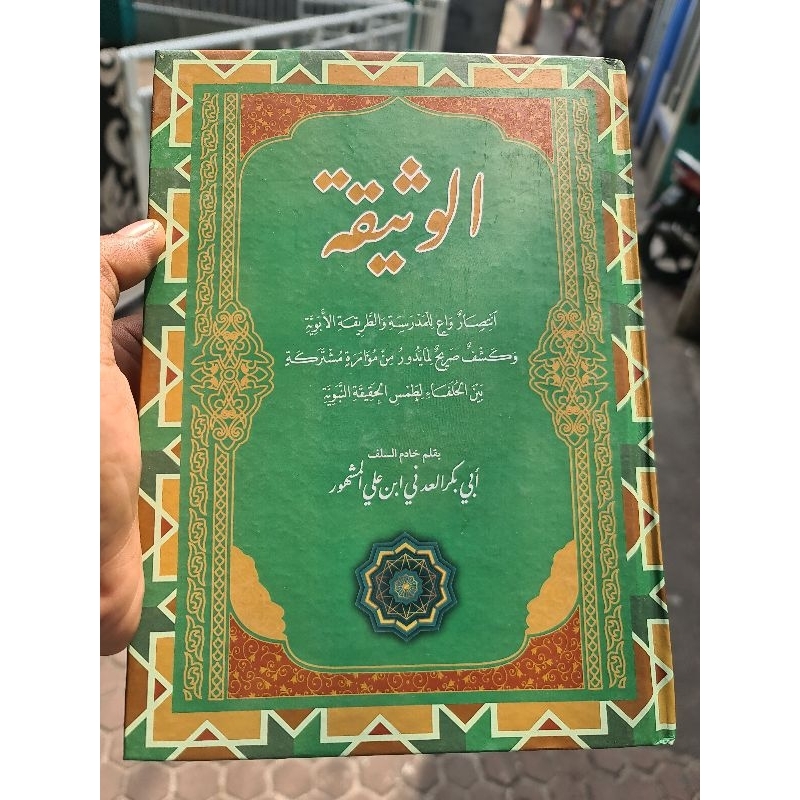 الوثيقة
انتصارٌ واعٍ للمدرسة والطريقة الأبوية
وكشفٌ صريحٌ لما يدور من مؤامرة مشتركة
بين الحلفاء لطمس الحقيقة النبوية
بقلم خادم السلف
أبي بكر العدني ابن علي المشهور